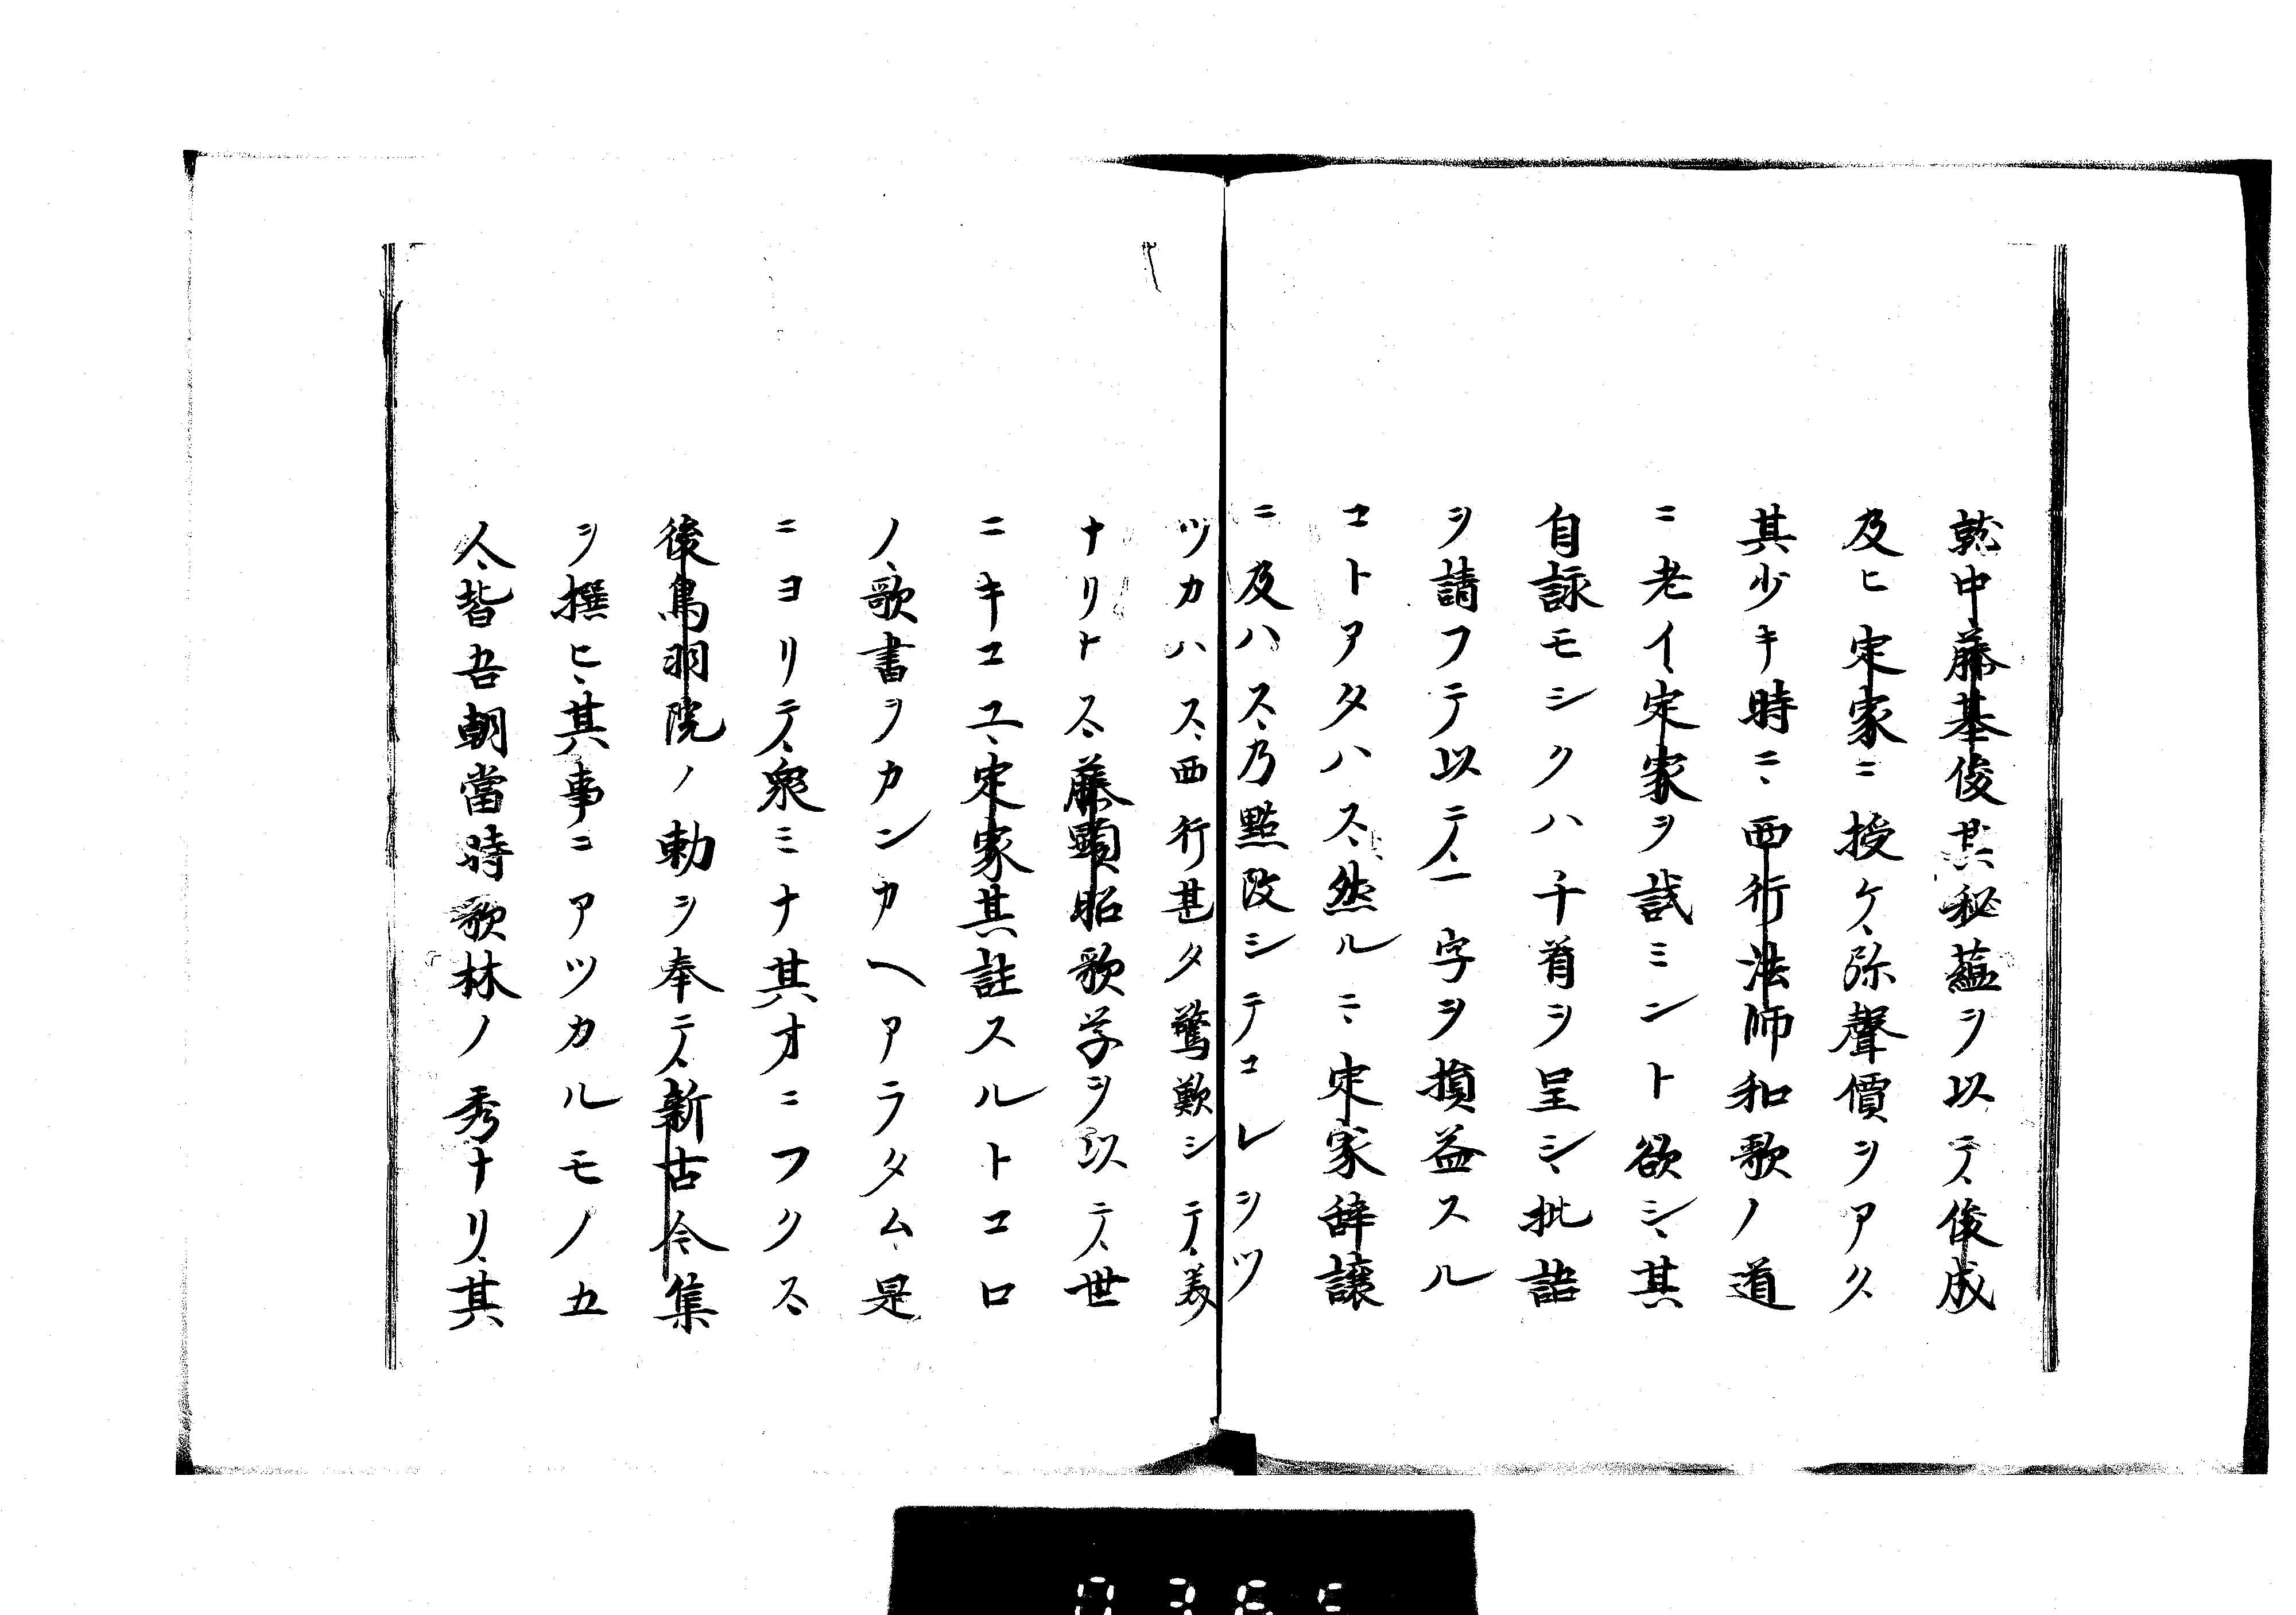 就中藤基俊其秘蘊ヲ以テ、俊成
及ヒ定家ニ授ケ、弥聲價ヲアク、
其少キ時ニ、西行法師和歌ノ道
ニ老イ、定家ヲ試ミント欲シ、其
自詠モシクハ千首ヲ呈シ、批語
ヲ請フテ以テ、一字ヲ損益スル
コトアタハス、然ルニ、定家辞譲
ニ及ハス、乃點改シテコレヲツ
ツカハス、西行甚タ驚歎シテ、美
ナリトス、藤顕昭歌学ヲ以テ、世
ニキコユ、定家其註スルトコロ
ノ、歌書ヲカンカヘアラタム、是
ニヨリテ、衆ミナ其才ニフクス、
後鳥羽院ノ勅ヲ奉テ、新古今集
ヲ撰ヒ、其事ニアツカルモノ五
人、皆吾朝當時歌林ノ秀ナリ、其